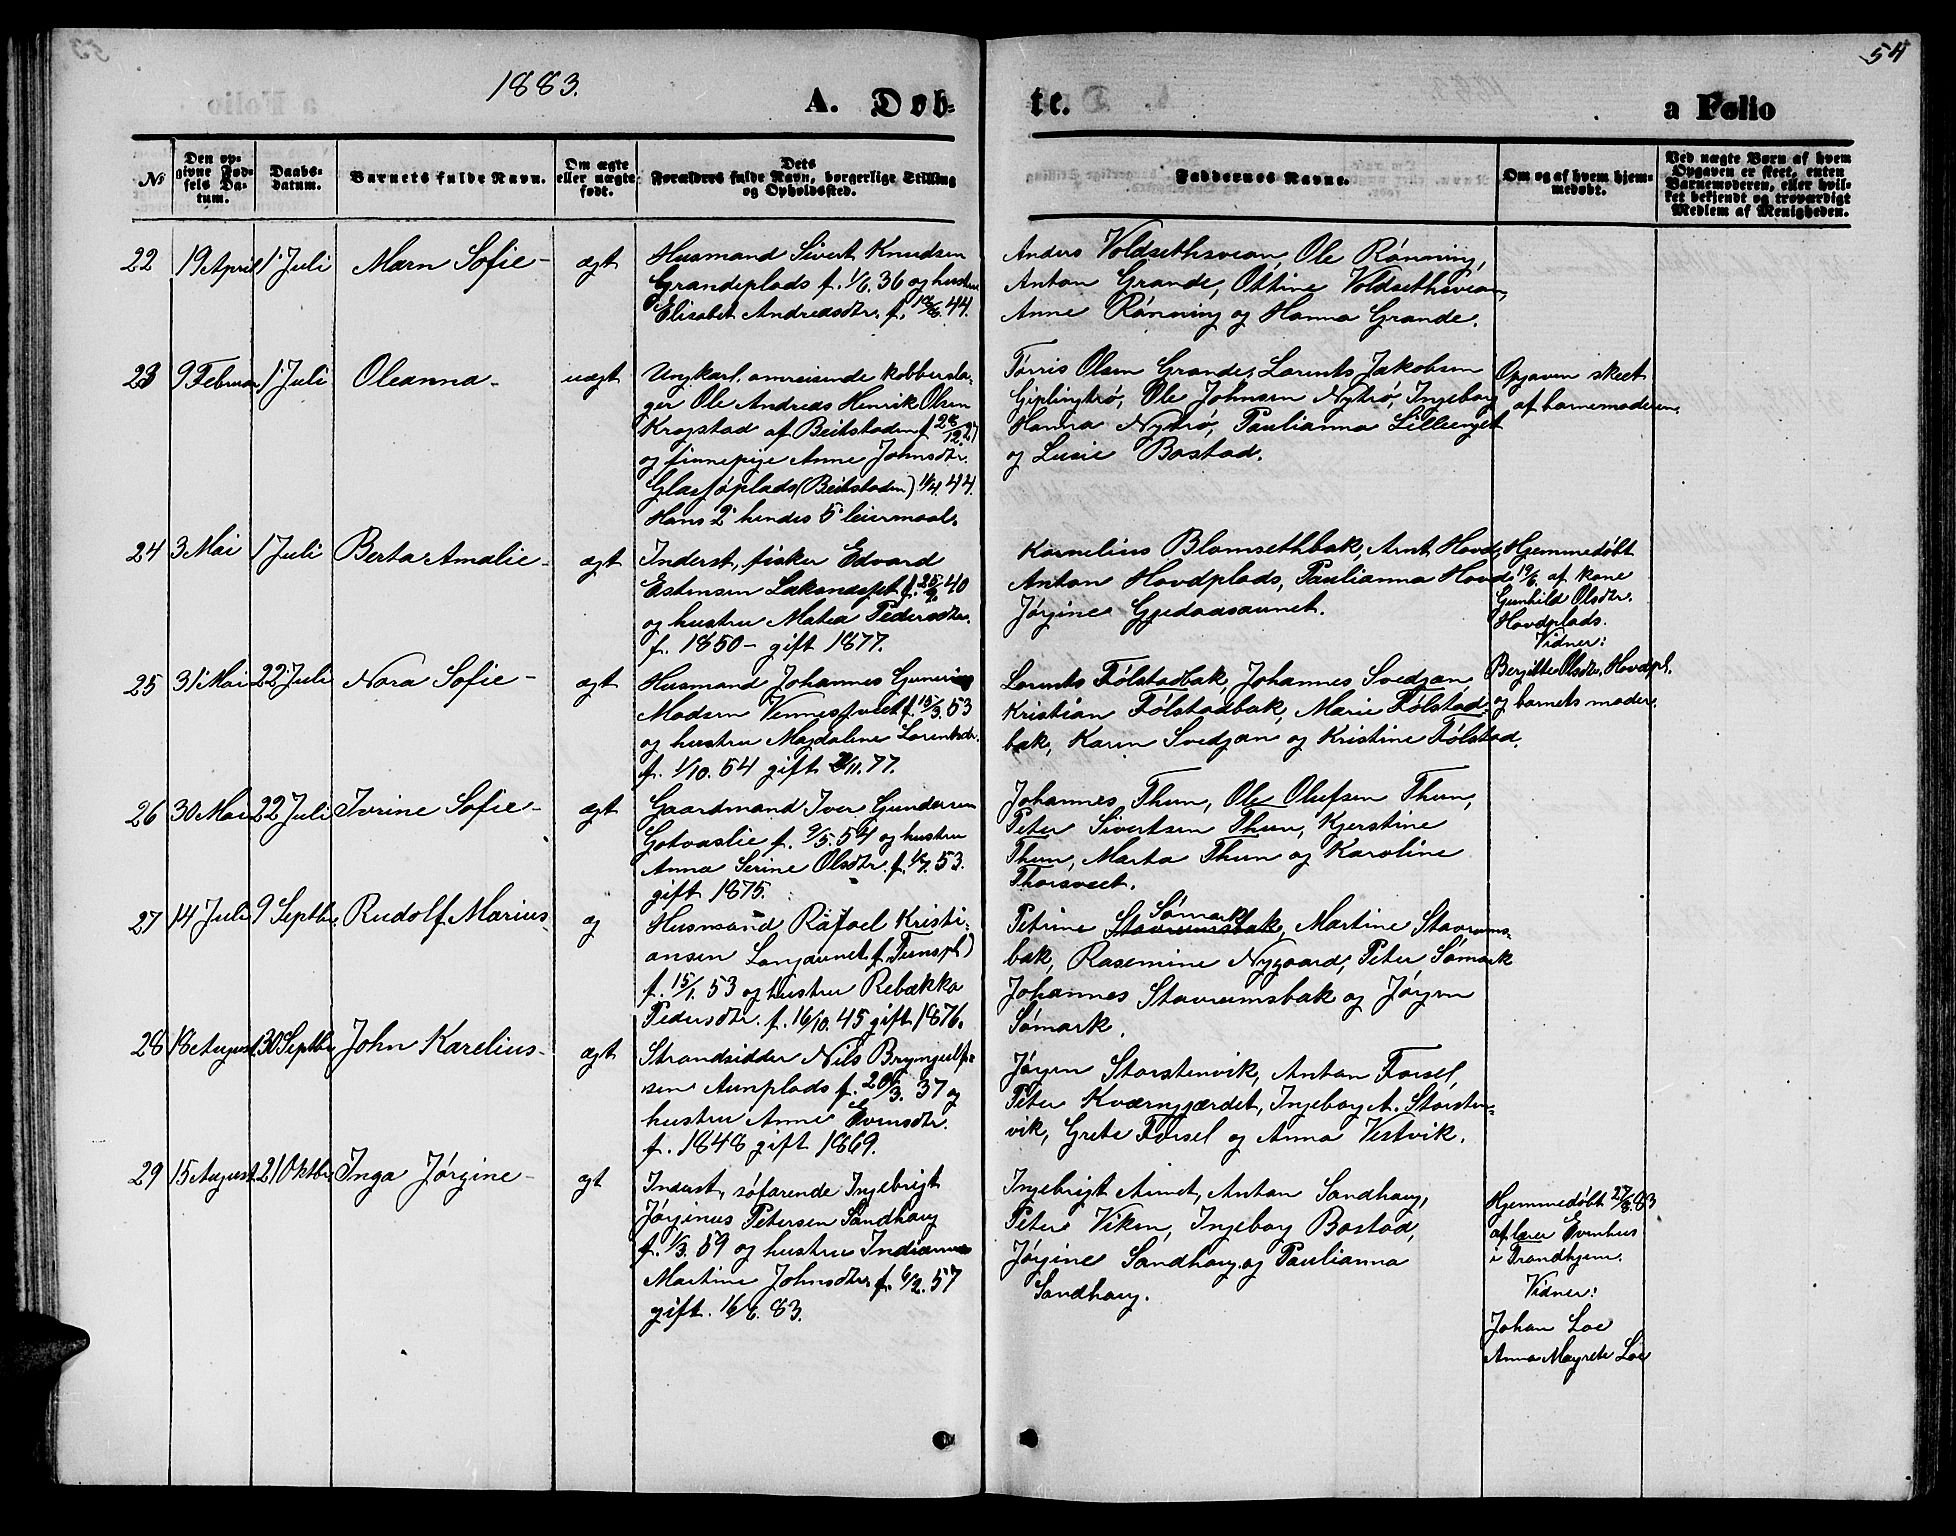 1883.
A. Døb-
te.
a Folio
54
№
Den op-
givne Fød-
sels Da-
tum.
Daabs-
datum.
Barnets fulde Navn.
Om ægte
eller uægte
født.
Dets
Forældres fulde Navn, borgerlige Stilling
og Opholdssted.
Faddernes Navne.
Om og af hvem hjem-
medøbt.
Ved uægte Børn af hvem
Opgaven er skeet, enten
Barnemoderen, eller hvil-
ket bekjendt og troværdigt
Medlem af Menigheden.
22 19 April 1 Juli Maren Sofie - ægt
Husmand Sivert Knudsen
Grandeplads f. 1/6. 36 og hustru
Elisabet Andreasdtr. f. 44.
Anders Voldsethsveian, Ole Rønning,
Anton Grande, Ottine Voldsethsveian,
Anne Rønning og Hanna Grande.
23 9 Februar 1 Juli Oleanna - uægt
Ungkarl, omreisende kobbersla-
ger Ole Andreas Henrik Olsen
Krogstad af Beitstaden f. 28/12. 27
og finnepige Anne Johnsdtr.
Glasøplads (Beitstaden) 1/4. 44.
Hans 2 hendes 5 leiermaal.
Tørris Olsen Grande, Lorents Jakobsen
Giplingtrø, Ole Johnsen Nytrø, Ingeborg
Hanna Nytrø, Paulianna Lillienget
og Lusie Bostad.
Opgaven skeet
af barnemoderen.
24 3 Mai 1 Juli Berta Amalie - ægt
Inderst, fisker Edvard
Estensen Lakanesset f. 25/9. 40
og hustru Matea Pedersdtr.
f. 1850 - gift 1877.
Kornelius Blomsethbak, Arnt Hovd,
Anton Hovdplads, Paulianna Hovd
Jørgine Gjedaasaunet.
Hjemmedøbt
19/6. af kone
Gunhild Olsdtr.
Hovdplads.
Vidner:
Bergitte Olsdtr, Hovdpl.
og barnets moder.
25 31 Mai 22 Juli Nora Sofie - ægt
Husmand Johannes Gunerius
Madsen Vennesfveet f. 15/3. 53
og hustru Magdaline Lorentsdtr.
f. 1/10. 54 gift 2/11. 77.
Lorents Følstadbak, Johannes Svedjan,
Kristian Følstadbak, Marie Følstad-
bak, Karen Svedjan og Kristine Følstad.
26 30 Mai 22 Juli Ivrine Sofie - ægt
Gaardmand Iver Gundersen
Gotvaslie f. 9/5. 54 og hustru
Anna Serine Olsdtr. f. 1/7. 53.
gift 1875.
Johannes Thun, Ole Olufsen Thun,
Peter Sivertsen Thun, Kjerstine
Thun, Marta Thun og Karoline
Thorsveet.
27 14 Juli 9 Septbr. Rudolf Marius - æg
Husmand Rafael Kristi-
ansen Langaunet f. Tunspl)
f. 15/1. 53 og hustru Rebækka
Pedersdtr. f. 16/10. 45 gift 1876.
Petrine Stavrumsbak Sømark, Martine Stavrums-
bak, Rasemine Nygaard, Peter Sømark
Johannes Stavrumsbak og Jørgen
Sømark.
28 18 August 30 Septbr John Karelius - ægt
Strandsidder Nils Brynjulf-
sen Aunplads f. 20/3. 37 og
hustru Anne Evensdtr.
f. 1848 gift 1869.
Jørgen Storstenvik, Anton Forsel,
Peter Kværngjærdet, Ingeborg A. Storsten-
vik, Grete Forsel og Anna Vestvik.
29 15 August 21 Oktbr Inga Jørgine - ægt
Inderst, søfarende Ingebrigt
Jørginus Petersen Sandhaug
f. 1/3. 59 og hustru Indianna
Martine Johnsdtr. f. 6/2. 57
gift. 16/6. 83.
Ingebrigt Aunet, Anton Sandhaug,
Peter Viken, Ingeborg Bostad,
Jørgine Sandhaug og Paulianna
Sandhaug.
Hjemmedøbt 27/8. 83
af lærer Evenhus
i Trondhjem.
Vidner:
Johan Loe
Anna Magrete Loe